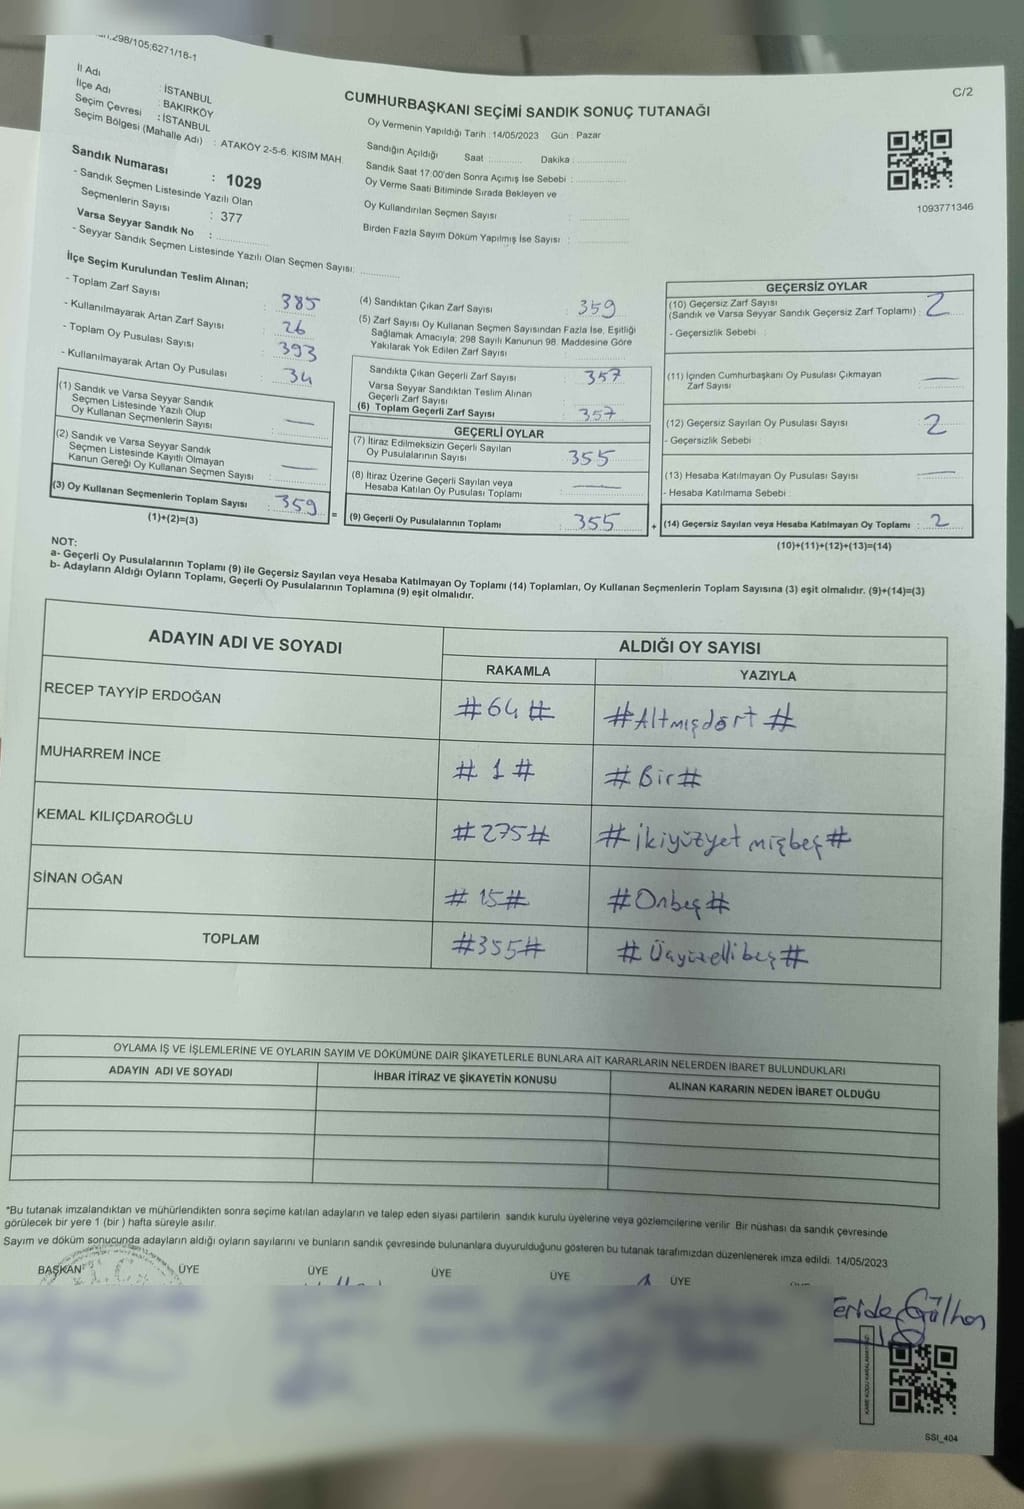 298/105;6271/18-1
C/2
İl Adı : İSTANBUL
İlçe Adı : BAKIRKÖY
Seçim Çevresi : İSTANBUL
Seçim Bölgesi (Mahalle Adı) : ATAKÖY 2-5-6. KISIM MAH
Sandık Numarası : 1029
- Sandık Seçmen Listesinde Yazılı Olan
Seçmenlerin Sayısı : 377
Varsa Seyyar Sandık No :
- Seyyar Sandık Seçmen Listesinde Yazılı Olan Seçmen Sayısı:
CUMHURBAŞKANI SEÇİMİ SANDIK SONUÇ TUTANAĞI
Oy Vermenin Yapıldığı Tarih : 14/05/2023 Gün : Pazar
Sandığın Açıldığı Saat Dakika :
Sandık Saat 17:00'den Sonra Açımış İse Sebebi :
Oy Verme Saati Bitiminde Sırada Bekleyen ve
Oy Kullandırılan Seçmen Sayısı :
Birden Fazla Sayım Döküm Yapılmış İse Sayısı :
1093771346
İlçe Seçim Kurulundan Teslim Alınan;
- Toplam Zarf Sayısı : 385
- Kullanılmayarak Artan Zarf Sayısı : 26
- Toplam Oy Pusulası Sayısı : 393
- Kullanılmayarak Artan Oy Pusulası : 34
(1) Sandık ve Varsa Seyyar Sandık
Seçmen Listesinde Yazılı Olup
Oy Kullanan Seçmenlerin Sayısı : —
(2) Sandık ve Varsa Seyyar Sandık
Seçmen Listesinde Kayıtlı Olmayan
Kanun Gereği Oy Kullanan Seçmen Sayısı : —
(3) Oy Kullanan Seçmenlerin Toplam Sayısı : 359
(1)+(2)=(3)
=
(4) Sandıktan Çıkan Zarf Sayısı : 359
(5) Zarf Sayısı Oy Kullanan Seçmen Sayısından Fazla İse, Eşitliği
Sağlamak Amacıyla; 298 Sayılı Kanunun 98. Maddesine Göre
Yakılarak Yok Edilen Zarf Sayısı :
Sandıkta Çıkan Geçerli Zarf Sayısı : 357
Varsa Seyyar Sandıktan Teslim Alınan
Geçerli Zarf Sayısı :
(6) Toplam Geçerli Zarf Sayısı : 357
GEÇERLİ OYLAR
(7) İtiraz Edilmeksizin Geçerli Sayılan
Oy Pusulalarının Sayısı : 355
(8) İtiraz Üzerine Geçerli Sayılan veya
Hesaba Katılan Oy Pusulası Toplamı : —
(9) Geçerli Oy Pusulalarının Toplamı : 355
+
GEÇERSİZ OYLAR
(10) Geçersiz Zarf Sayısı
(Sandık ve Varsa Seyyar Sandık Geçersiz Zarf Toplamı) : 2
- Geçersizlik Sebebi :
(11) İçinden Cumhurbaşkanı Oy Pusulası Çıkmayan
Zarf Sayısı : —
(12) Geçersiz Sayılan Oy Pusulası Sayısı : 2
- Geçersizlik Sebebi :
(13) Hesaba Katılmayan Oy Pusulası Sayısı : —
- Hesaba Katılmama Sebebi :
(14) Geçersiz Sayılan veya Hesaba Katılmayan Oy Toplamı : 2
(10)+(11)+(12)+(13)=(14)
NOT:
a- Geçerli Oy Pusulalarının Toplamı (9) ile Geçersiz Sayılan veya Hesaba Katılmayan Oy Toplamı (14) Toplamları, Oy Kullanan Seçmenlerin Toplam Sayısına (3) eşit olmalıdır. (9)+(14)=(3)
b- Adayların Aldığı Oyların Toplamı, Geçerli Oy Pusulalarının Toplamına (9) eşit olmalıdır.
ADAYIN ADI VE SOYADI ALDIĞI OY SAYISI
RAKAMLA YAZIYLA
RECEP TAYYİP ERDOĞAN #64# #Altmışdört#
MUHARREM İNCE #1# #Bir#
KEMAL KILIÇDAROĞLU #275# #ikiyüzyetmişbeş#
SİNAN OĞAN #15# #Onbeş#
TOPLAM #355# #Üçyüzellibeş#
OYLAMA İŞ VE İŞLEMLERİNE VE OYLARIN SAYIM VE DÖKÜMÜNE DAİR ŞİKAYETLERLE BUNLARA AİT KARARLARIN NELERDEN İBARET BULUNDUKLARI
ADAYIN ADI VE SOYADI İHBAR İTİRAZ VE ŞİKAYETİN KONUSU ALINAN KARARIN NEDEN İBARET OLDUĞU
*Bu tutanak imzalandıktan ve mühürlendikten sonra seçime katılan adayların ve talep eden siyasi partilerin sandık kurulu üyelerine veya gözlemcilerine verilir. Bir nüshası da sandık çevresinde
görülecek bir yere 1 (bir ) hafta süreyle asılır.
Sayım ve döküm sonucunda adayların aldığı oyların sayılarını ve bunların sandık çevresinde bulunanlara duyurulduğunu gösteren bu tutanak tarafımızdan düzenlenerek imza edildi. 14/05/2023
BAŞKAN ÜYE ÜYE ÜYE ÜYE ÜYE
T.C.
Feride Gülhan
SSI_404